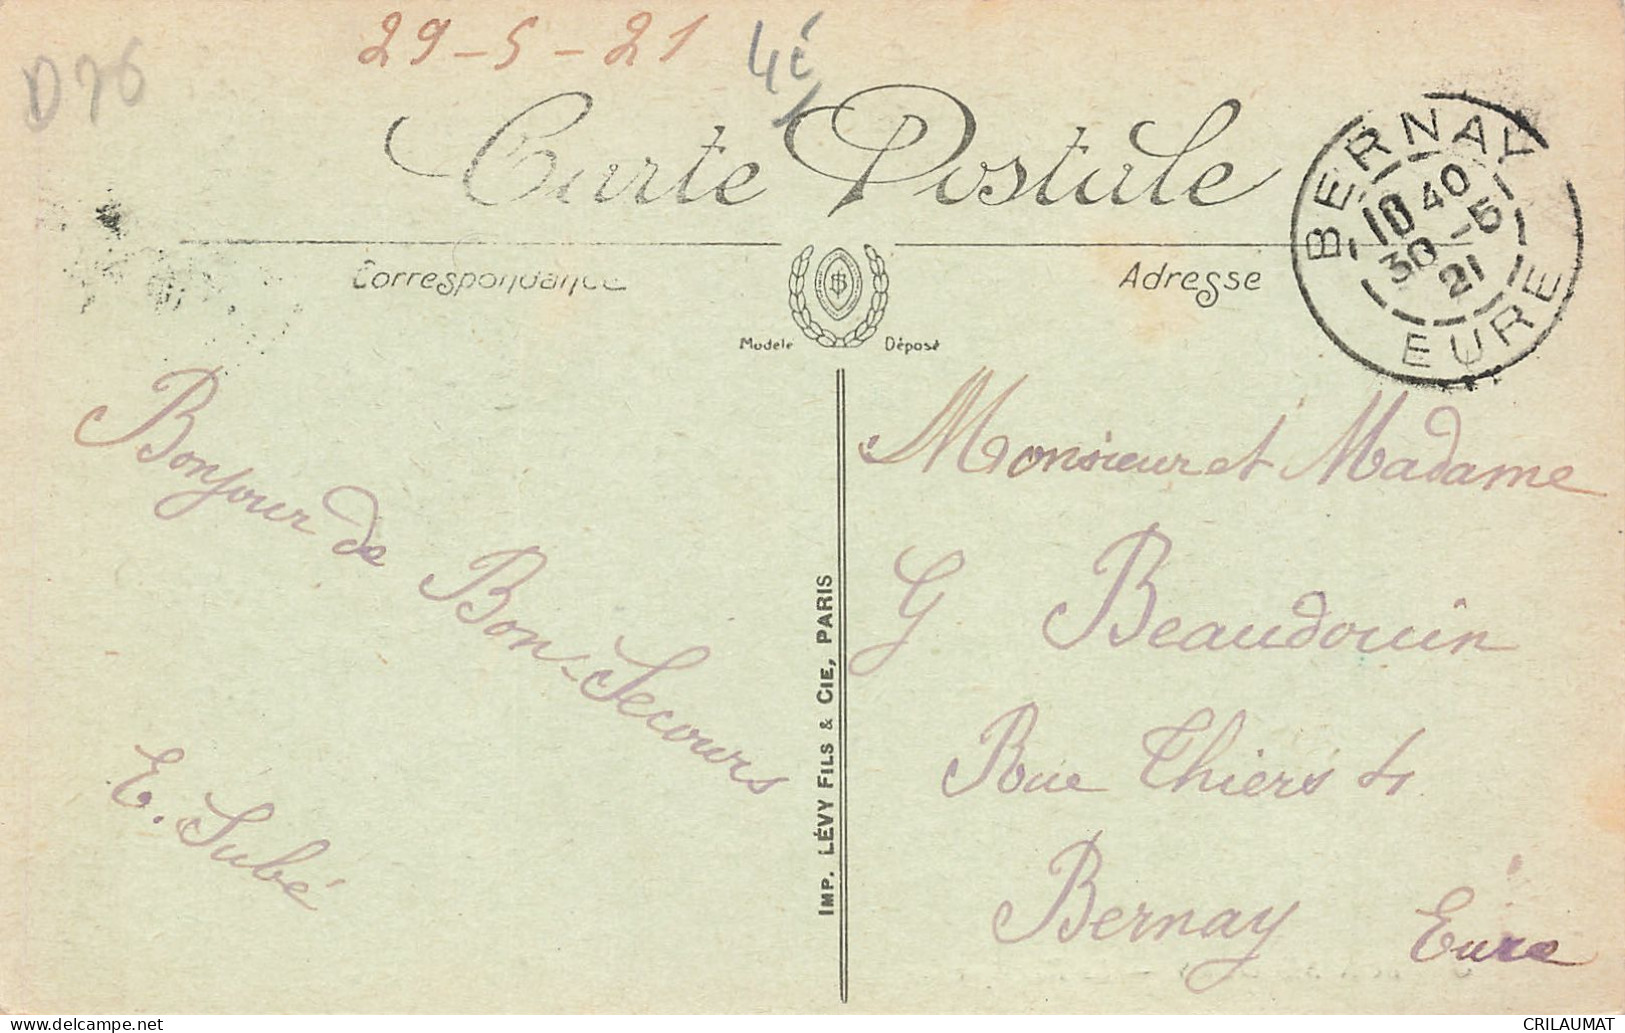 D76
29-5-21
Carte Postale
Correspondance
Adresse
Modele Déposé
BERNAY
10 40
30-5
21
EURE
Bonjour de Bon-Secours
E. Subé
IMP. LÉVY FILS & CIE, PARIS
Monsieur et Madame
G Beaudouin
Rue Thiers 4
Bernay Eure
CRILAUMAT